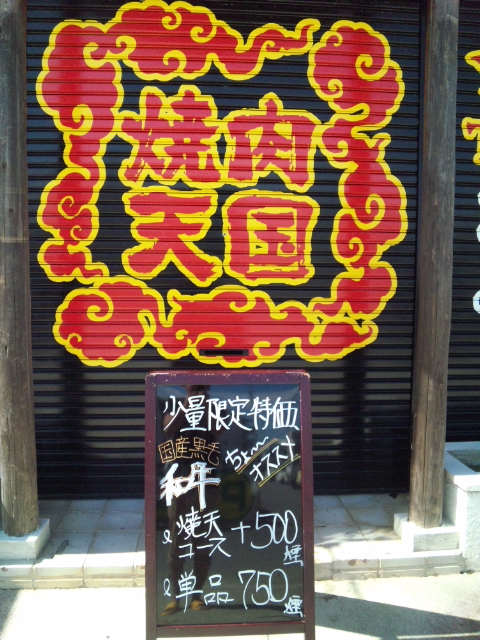 焼肉
天国
少量限定特価
国産黒毛
和牛
ちょ〜
オススメ
焼天
コース +500煙
単品 750煙